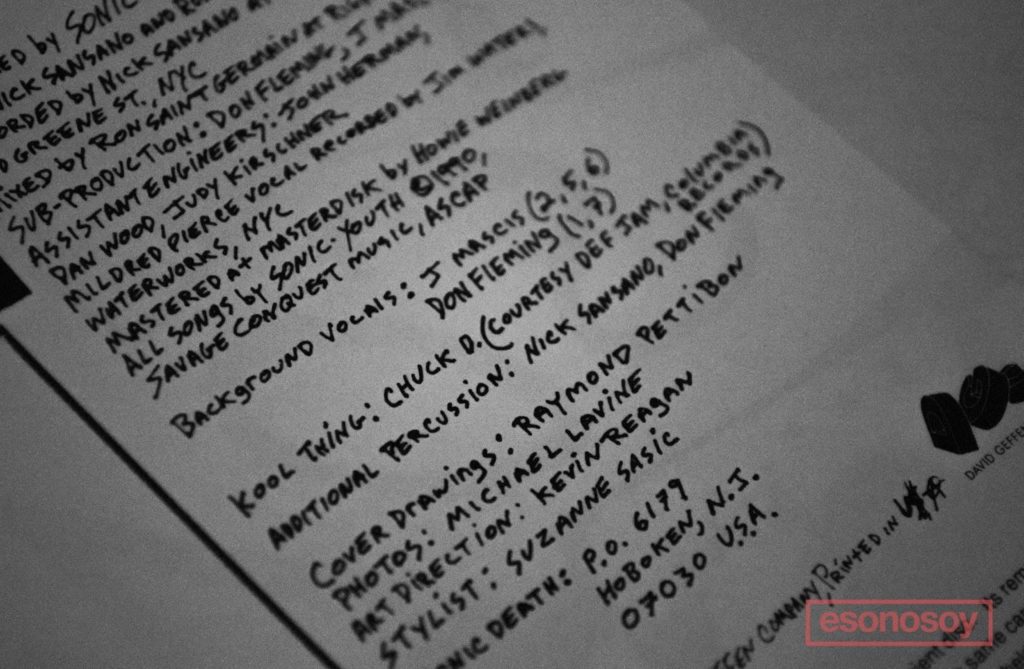 ED by SONIC
NICK SANSANO AND
ORDED by NICK SANSANO AT
GREENE ST., NYC
MIXED by RON SAINT GERMAIN AT
SUB-PRODUCTION: DON FLEMING, J
ASSISTANT ENGINEERS: JOHN HERMAN,
DAN WOOD, JUDY KIRSCHNER
MILDRED PIERCE VOCAL RECORDED by JIM WATERS,
WATERWORKS, NYC
MASTERED AT MASTERDISK by HOWIE WEINBERG
ALL SONGS by SONIC-YOUTH ©1990,
SAVAGE CONQUEST MUSIC, ASCAP
BACKGROUND VOCALS: J MASCIS (2, 5, 6)
DON FLEMING (1, 7)
KOOL THING: CHUCK D. (COURTESY DEF JAM, COLUMBIA
RECORDS)
ADDITIONAL PERCUSSION: NICK SANSANO, DON FLEMING
COVER DRAWINGS: RAYMOND PETTIBON
PHOTOS: MICHAEL LAVINE
ART DIRECTION: KEVIN REAGAN
STYLIST: SUZANNE SASIC
ONIC DEATH: P.O. 6179
HOBOKEN, N.J.
07030 U.S.A.
DAVID GEFFE
FEN COMPANY, PRINTED IN
esonosoy